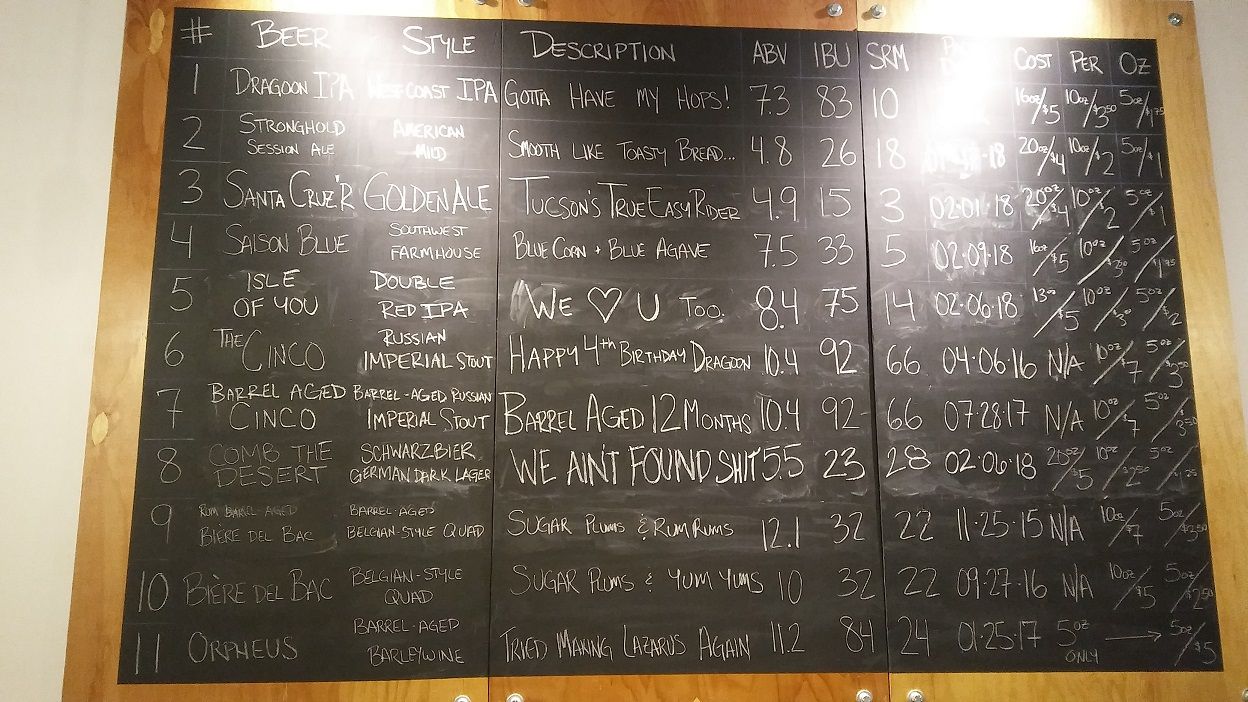 # BEER STYLE DESCRIPTION ABV IBU SRM COST PER OZ
1 DRAGOON IPA WEST COAST IPA GOTTA HAVE MY HOPS! 7.3 83 10 16oz/$5 10oz/$3.50 5oz/$1.75
2 STRONGHOLD SESSION ALE AMERICAN MILD SMOOTH LIKE TOASTY BREAD... 4.8 26 18 20oz/$4 10oz/$2 5oz/$1
3 SANTA CRUZ'R GOLDEN ALE TUCSON'S TRUE EASY RIDER 4.9 15 3 02.01.18 20oz/$4 10oz/$2 5oz/$1
4 SAISON BLUE SOUTHWEST FARMHOUSE BLUE CORN + BLUE AGAVE 7.5 33 5 02.09.18 16oz/$5 10oz/ 5oz/
5 ISLE OF YOU DOUBLE RED IPA WE ♡ U TOO. 8.4 75 14 02.06.18 13oz/$5 10oz/ 5oz/$2
6 THE CINCO RUSSIAN IMPERIAL STOUT HAPPY 4th BIRTHDAY DRAGOON 10.4 92 66 04.06.16 N/A 10oz/$7 5oz/$3.50
7 BARREL AGED CINCO BARREL-AGED RUSSIAN IMPERIAL STOUT BARREL AGED 12 MONTHS 10.4 92 66 07.28.17 N/A 10oz/$7 5oz/$3.50
8 COMB THE DESERT SCHWARZBIER GERMAN DARK LAGER WE AIN'T FOUND SHIT 5.5 23 28 02.06.18 20oz/$5 10oz/$2.50 5oz/$1.25
9 RUM BARREL-AGED BIÈRE DEL BAC BARREL-AGED BELGIAN-STYLE QUAD SUGAR PLUMS & RUM RUMS 12.1 32 22 11.25.15 N/A 10oz/$7 5oz/$3.50
10 BIÈRE DEL BAC BELGIAN-STYLE QUAD SUGAR PLUMS & YUM YUMS 10 32 22 09.27.16 N/A 10oz/$5 5oz/$2.50
11 ORPHEUS BARREL-AGED BARLEYWINE TRIED MAKING LAZARUS AGAIN 11.2 84 24 01.25.17 5oz ONLY → 5oz/$5